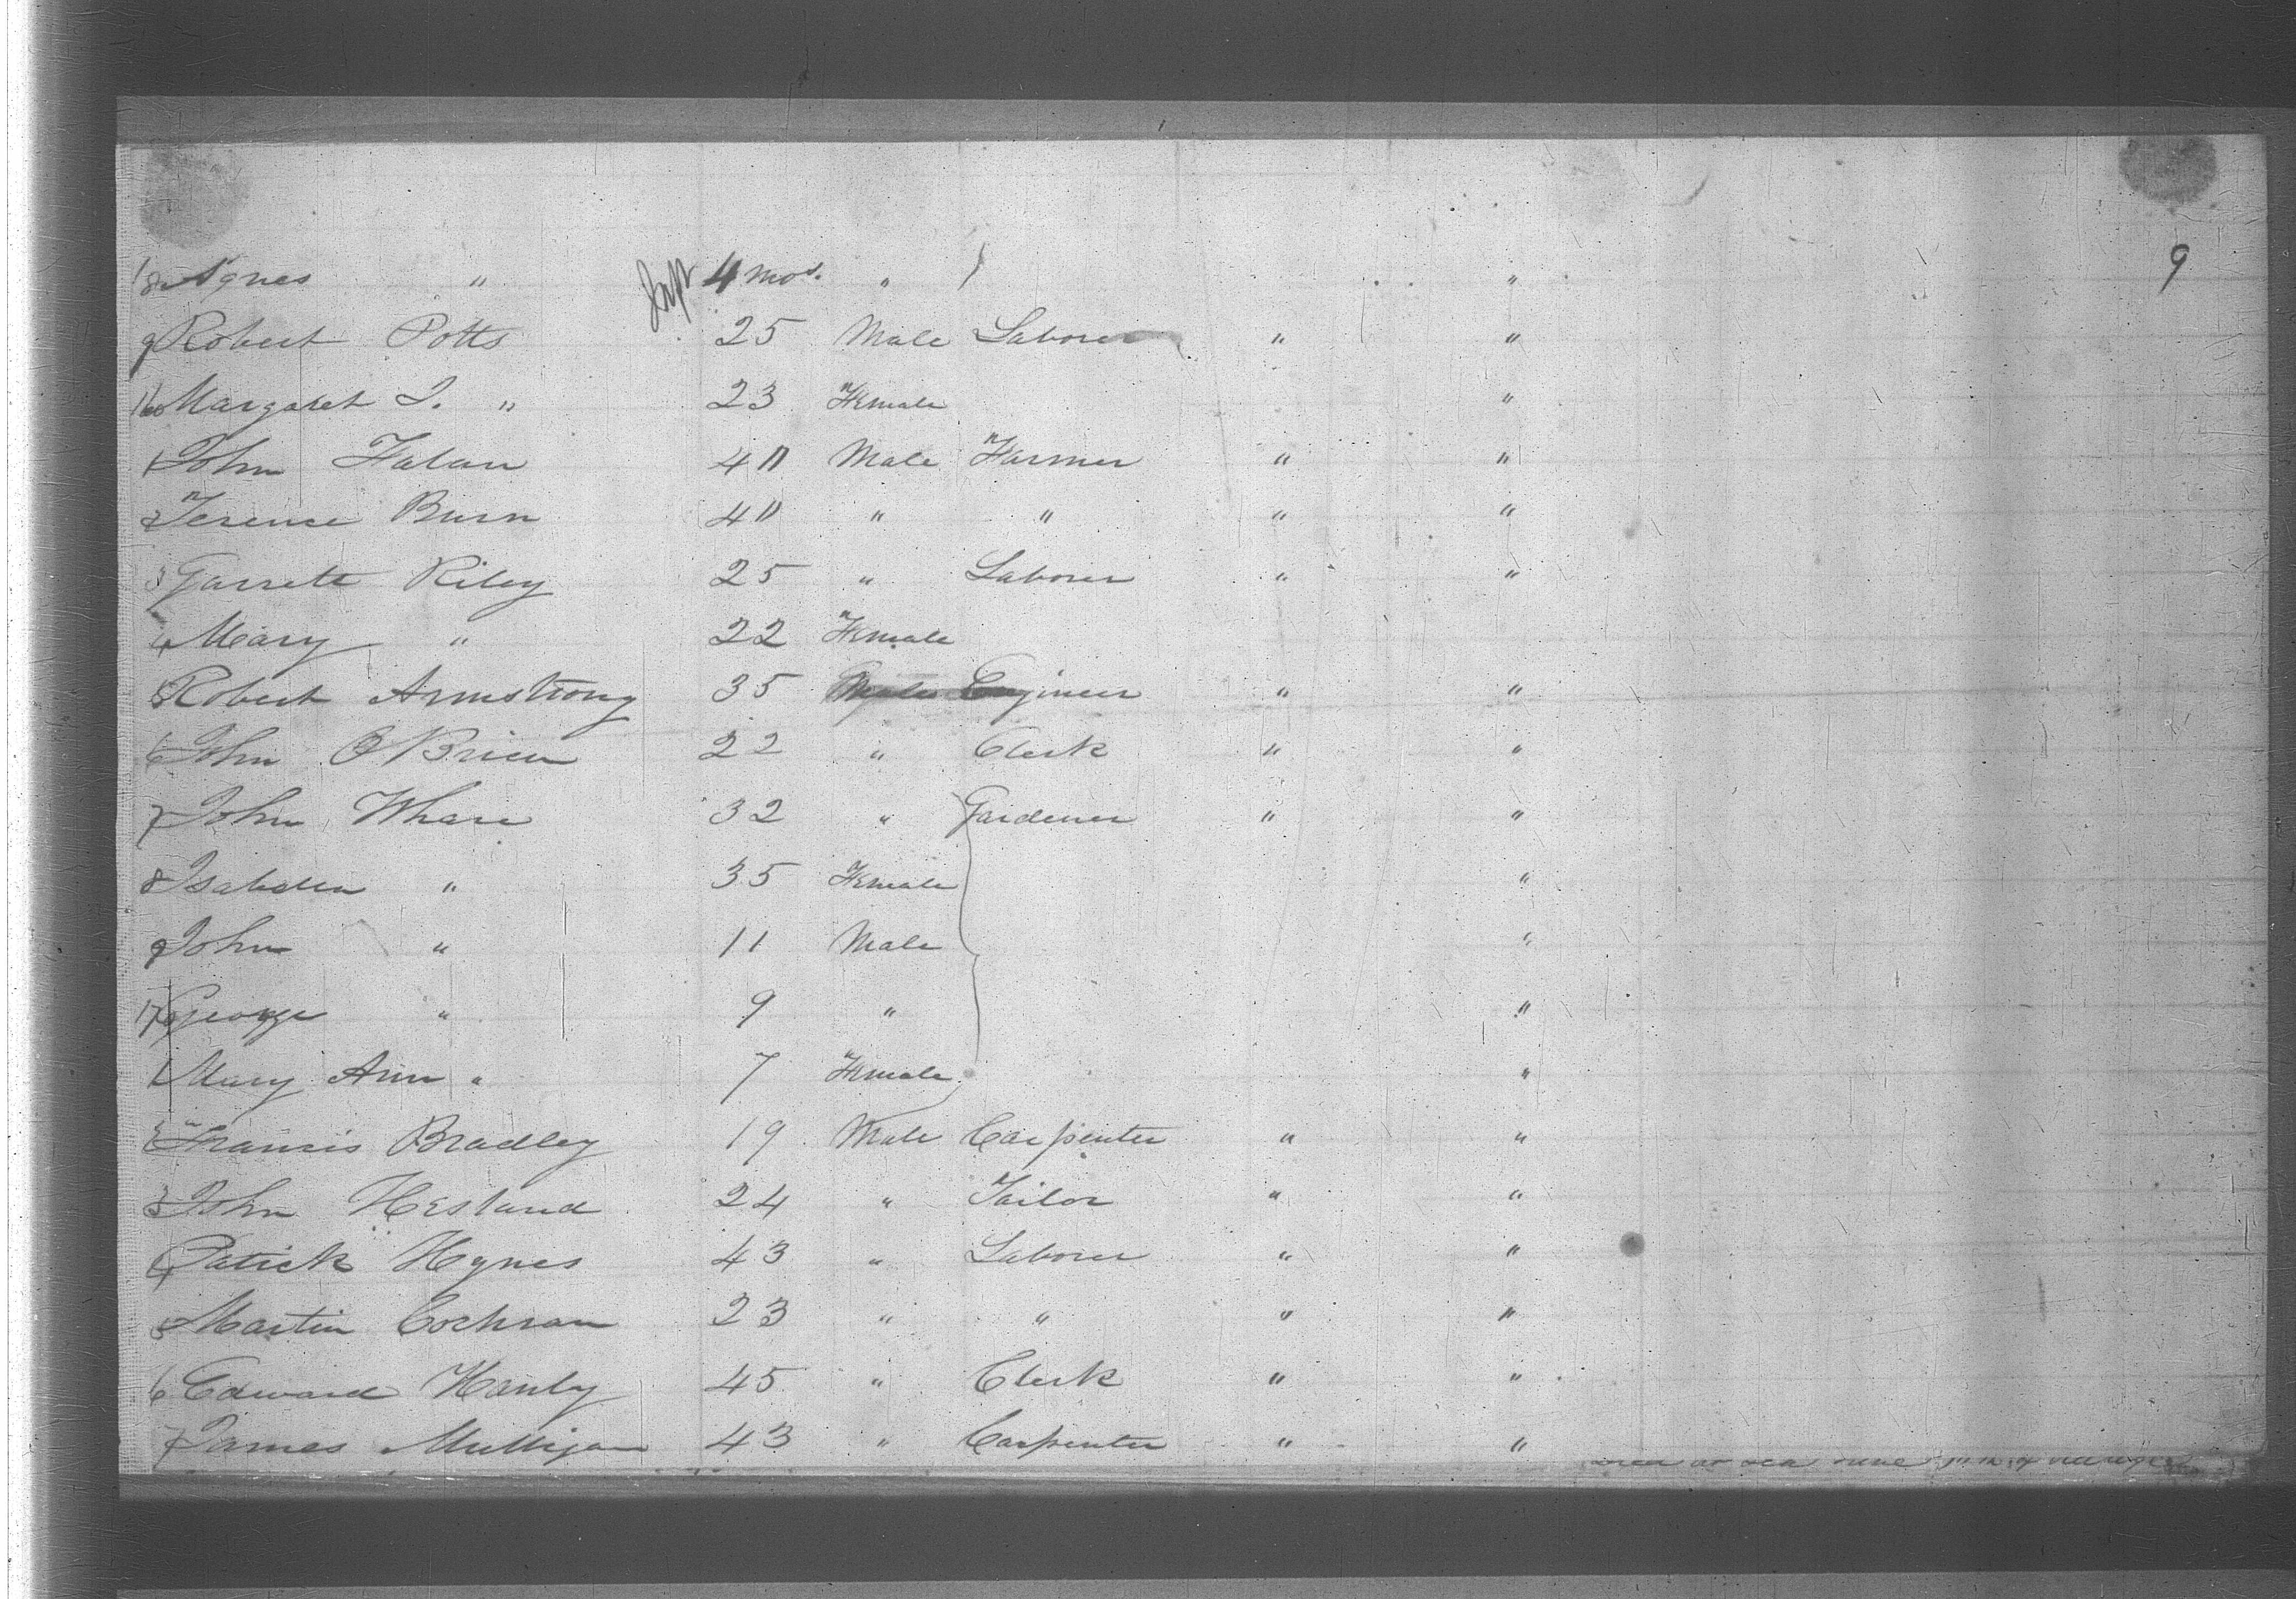 9
8 Agnes " Inft 4 mos. "
9 Robert Potts 25 Male Laborer " "
160 Margaret J. " 23 Female "
1 John Falan 40 Male Farmer " "
2 Terence Burn 40 " " " "
3 Garrett Riley 25 " Laborer " "
4 Mary " 22 Female "
5 Robert Armstrong 35 Male Engineer " "
6 John O'Brien 22 " Clerk " "
7 John Whare 32 " Gardener " "
8 Isabella " 35 Female "
9 John " 11 Male "
170 George " 9 " "
1 Mary Ann " 7 Female "
2 Francis Bradley 19 Male Carpenter " "
3 John Hesland 24 " Tailor " "
4 Patick Hynes 43 " Laborer " "
5 Martin Cochran 23 " " " "
6 Edward Hanly 45 " Clerk " "
7 James Mulligan 43 " Carpenter " "